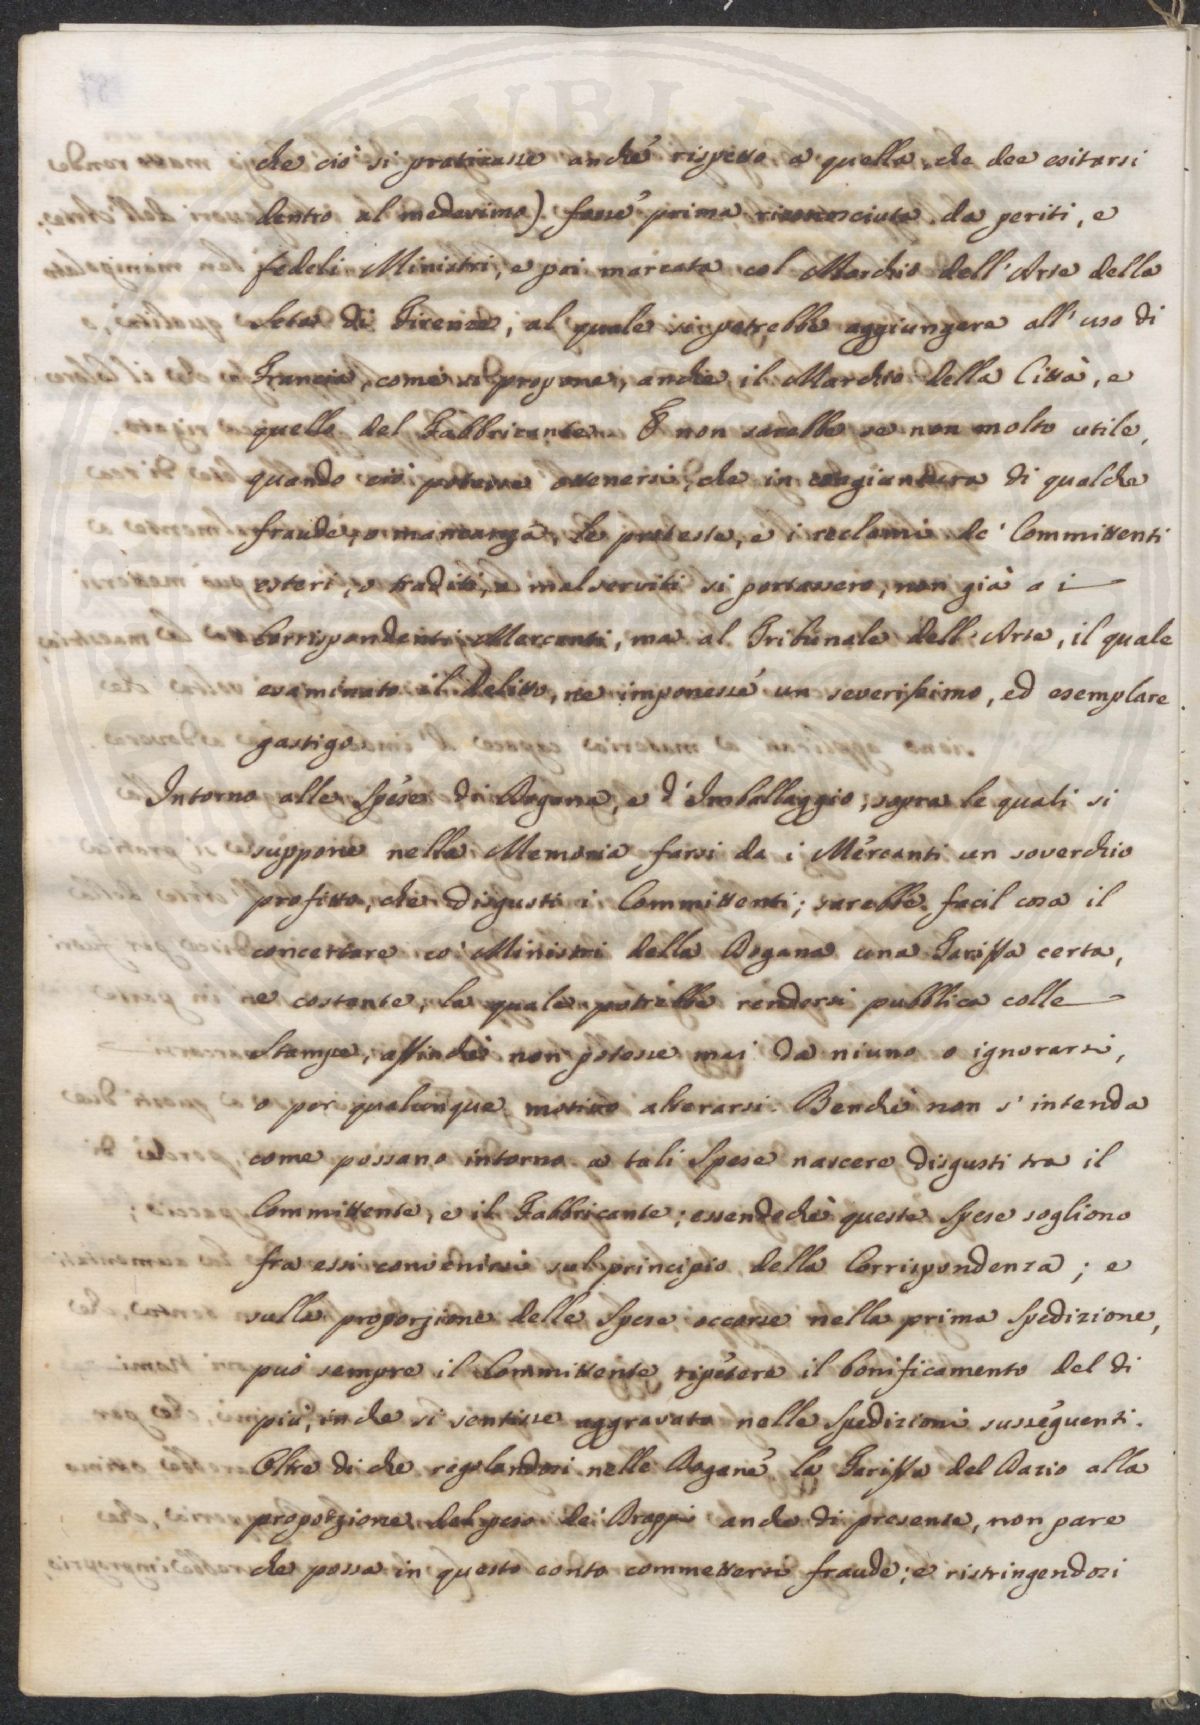 che ciò si praticasse anche rispetto a quella, che dee esitarsi
dentro al medesimo) fosse prima riconosciuta da periti, e
fedeli Ministri, e poi marcata col Marchio dell'Arte della
Seta di Firenze, al quale si potrebbe aggiungere all'uso di
Francia, come si propone, anche il Marchio della Città, e
quello del Fabbricante. E non sarebbe se non molto utile,
quando ciò potesse ottenersi, che in congiuntura di qualche
fraude, o mancanza, le proteste, e i reclami de' Committenti
esteri, o traditi, o mal serviti si portassero, non già a i
Corrispondenti Mercanti, ma al Tribunale dell'Arte, il quale
esaminato il Delitto, ne imponesse un severissimo, ed esemplare
gastigo.
Intorno alle Spese di Dogana, e d'Imballaggio, sopra le quali si
suppone nella Memoria farsi da i Mercanti un soverchio
profitto, che disgusti i Committenti; sarebbe facil cosa il
concertare co' Ministri della Dogana una Tariffa certa,
e costante, la quale potrebbe rendersi pubblica colle
Stampe, affinché non potesse mai da niuno o ignorarsi,
o per qualunque motivo alterarsi. Benché non s'intenda
come possano intorno a tali Spese nascere disgusti tra il
Committente, e il Fabbricante; essendoché queste Spese sogliono
fra essi convenirsi sul principio della Corrispondenza; e
sulla proporzione delle Spese occorse nella prima Spedizione,
può sempre il Committente ripetere il bonificamento del di
più, in che si sentisse aggravato nelle Spedizioni susseguenti.
Oltre di che regolandosi nelle Dogane la Tariffa del Dazio alla
proporzione del peso dei Drappi anche di presente, non pare
che possa in questo conto commettersi fraude; e ristringendosi